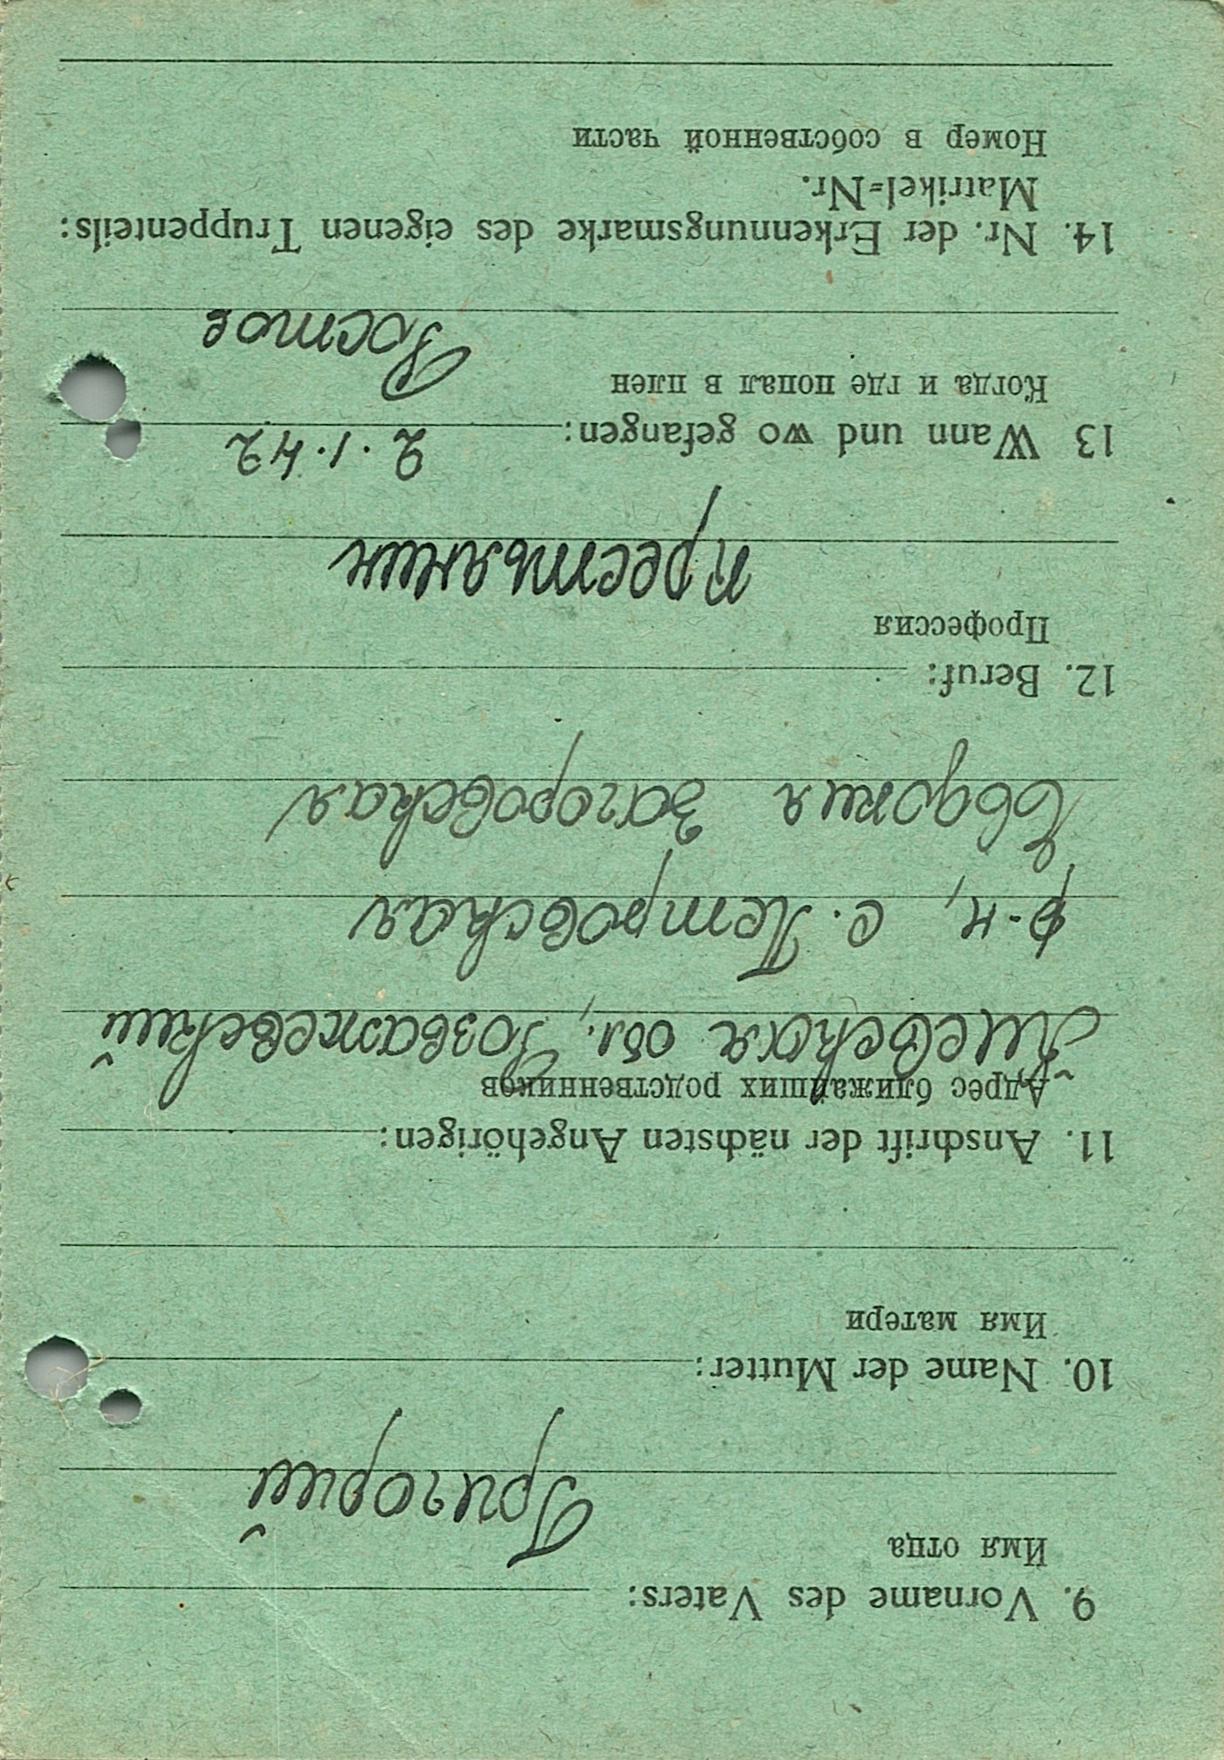 9. Vorname des Vaters:
Имя отца
Григорий
10. Name der Mutter:
Имя матери
11. Anschrift der nächsten Angehörigen:
Адрес ближайших родственников
Киевская обл., Розважевский
р-н, с. Петровская
Евдокия Загоровская
12. Beruf:
Профессия
крестьянин
13 Wann und wo gefangen: 2.1.42
Когда и где попал в плен
Ростов
14. Nr. der Erkennungsmarke des eigenen Truppenteils:
Matrikel=Nr.
Номер в собственной части